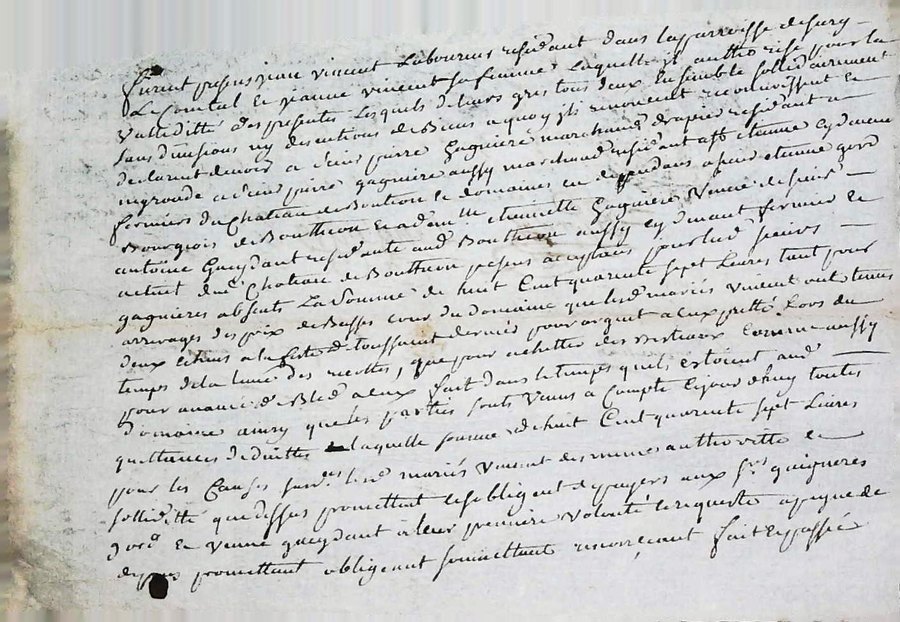 furent presens jean vincent Laboureur residant dans la parroisse de sury
Le Comtal Et jeanne vincent sa femme Laquelle il authorise pour la
validitté des presentes Lesquels de leurs gres tous deux Ensemble sollidairement
sans divisions ny discutions de Biens a quoy ils renoncent reconnoissent et
declarent devoir a sieur pierre gagniere marchand drapier residant a
a sieur pierre gagniere aussy marchand residant aud Etienne cydevant
fermiers du Chateau de Bouthron Et domaines en dependans a sieur etienne
Bourgeois de Bouthron Et a dem.lle gagniere Veuve de sieur
antoine Gueydant residante aud Bouthron aussy cydevant fermier Et
actuel dud Chateau de Bouthron presens acceptans pour led sieurs
gagnieres absents La Somme de huit Cent quarente sept Livres tant pour
arrerages des prix de Basse cour du domaine que lesd mariés vincent ont tenus
deux echeus a la fete de toussaint dernier pour argent a eux pretté Lors du
temps de la levée des recoltes, que pour achetter des bestiaux comme aussy
pour avance de Bled a eux fait dans le temps quils estoient aud
domaine ainsy que les parties sont Venus a Compte Cejourdhuy toutes
quittances deduittes laquelle somme de huit Cent quarente sept Livres
pour les Causes susd.es lesd mariés Vincent des memes authoritté et
solliditté que dessus promettent et sobligent de payer aux s.rs gaignieres
Et veuve gueydant a leur premiere Volonté et requeste a peyne de
depens promettant obligeant soumettant renonceant fait Et passé